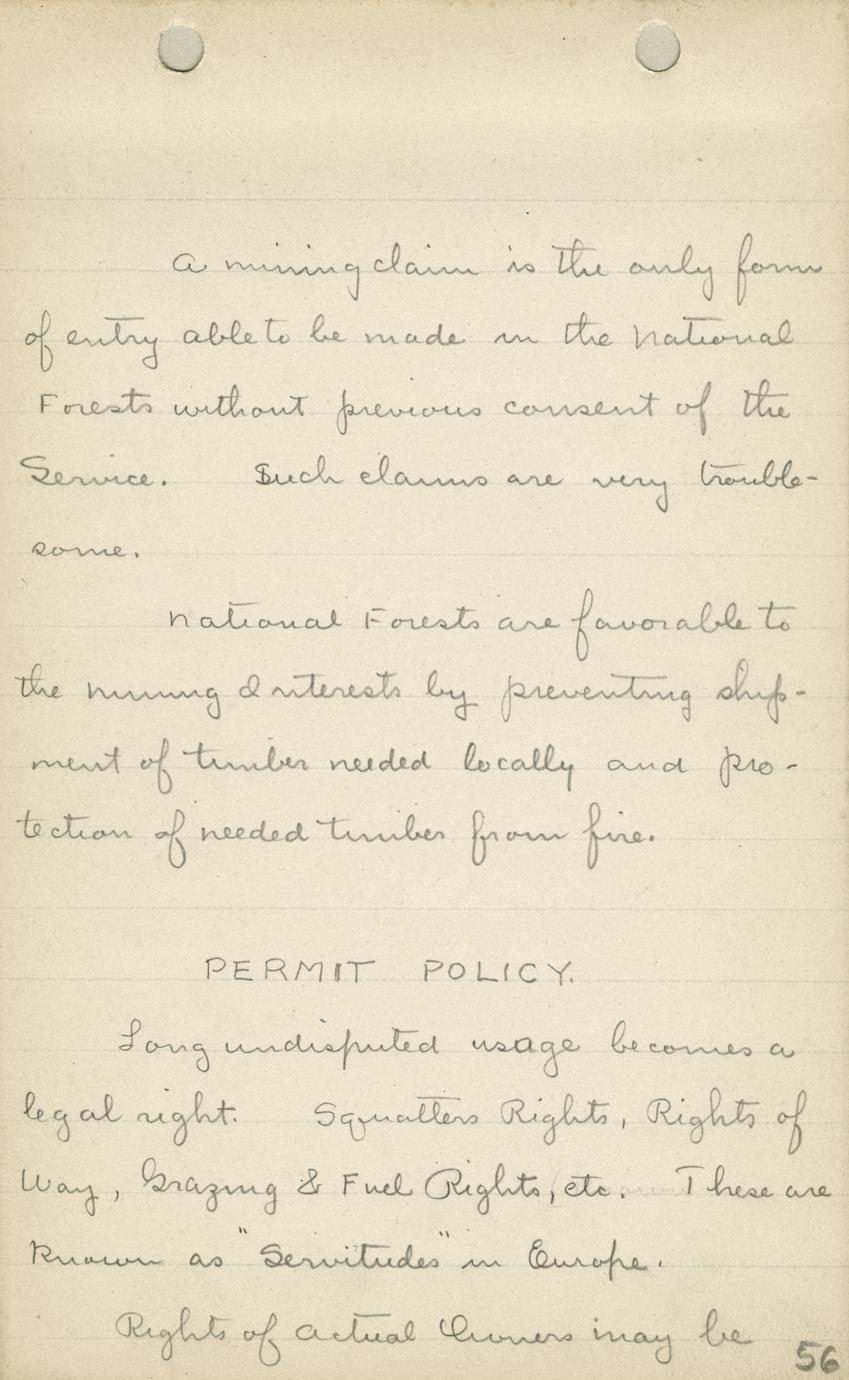 A mining claim is the only form
of entry able to be made in the National
Forests without previous consent of the
Service. Such claims are very trouble-
some.
National Forests are favorable to
the mining interests by preventing ship-
ment of timber needed locally and pro-
tection of needed timber from fire.
PERMIT POLICY.
Long undisputed usage becomes a
legal right. Squatters Rights, Rights of
Way, Grazing & Fuel Rights, etc. These are
known as "Servitudes" in Europe.
Rights of actual Owners may be
56